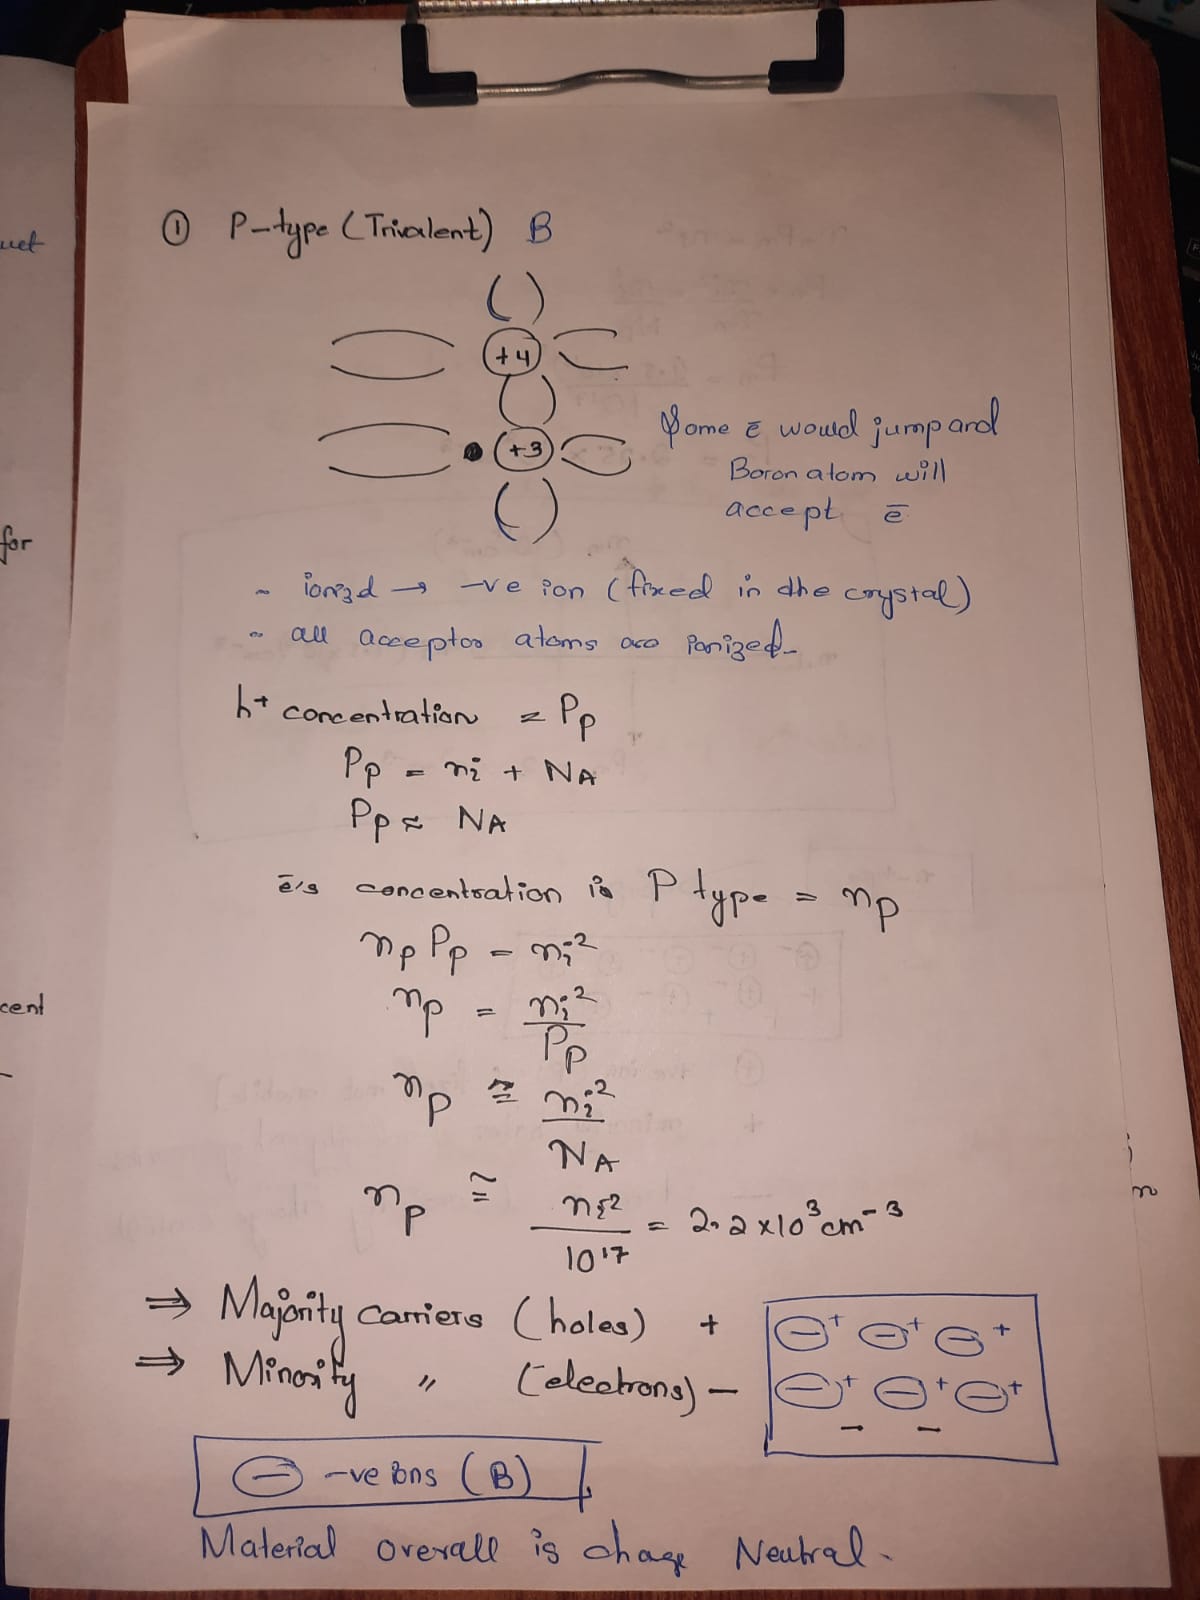 ① P-type (Trivalent) B
+4
+3
Some ē would jump and
Boron atom will
accept ē
~ ionizd → -ve ion (fixed in the crystal)
~ all acceptor atoms are ionized-
h⁺ concentration = Pp
Pp = ni + NA
Pp ≈ NA
ē's concentration in P type = np
np Pp = ni²
np = ni²/Pp
np ≅ ni²/NA
np ≅ ni²/10¹⁷ = 2.2 x 10³ cm⁻³
⇒ Majority carriers (holes) +
⇒ Minority " (electrons) −
⊖⁺ ⊖⁺ ⊖⁺
⊖⁺ ⊖⁺ ⊖⁺
− −
⊖ -ve ions (B)
Material overall is chage Neutral.
uet
for
cent
n